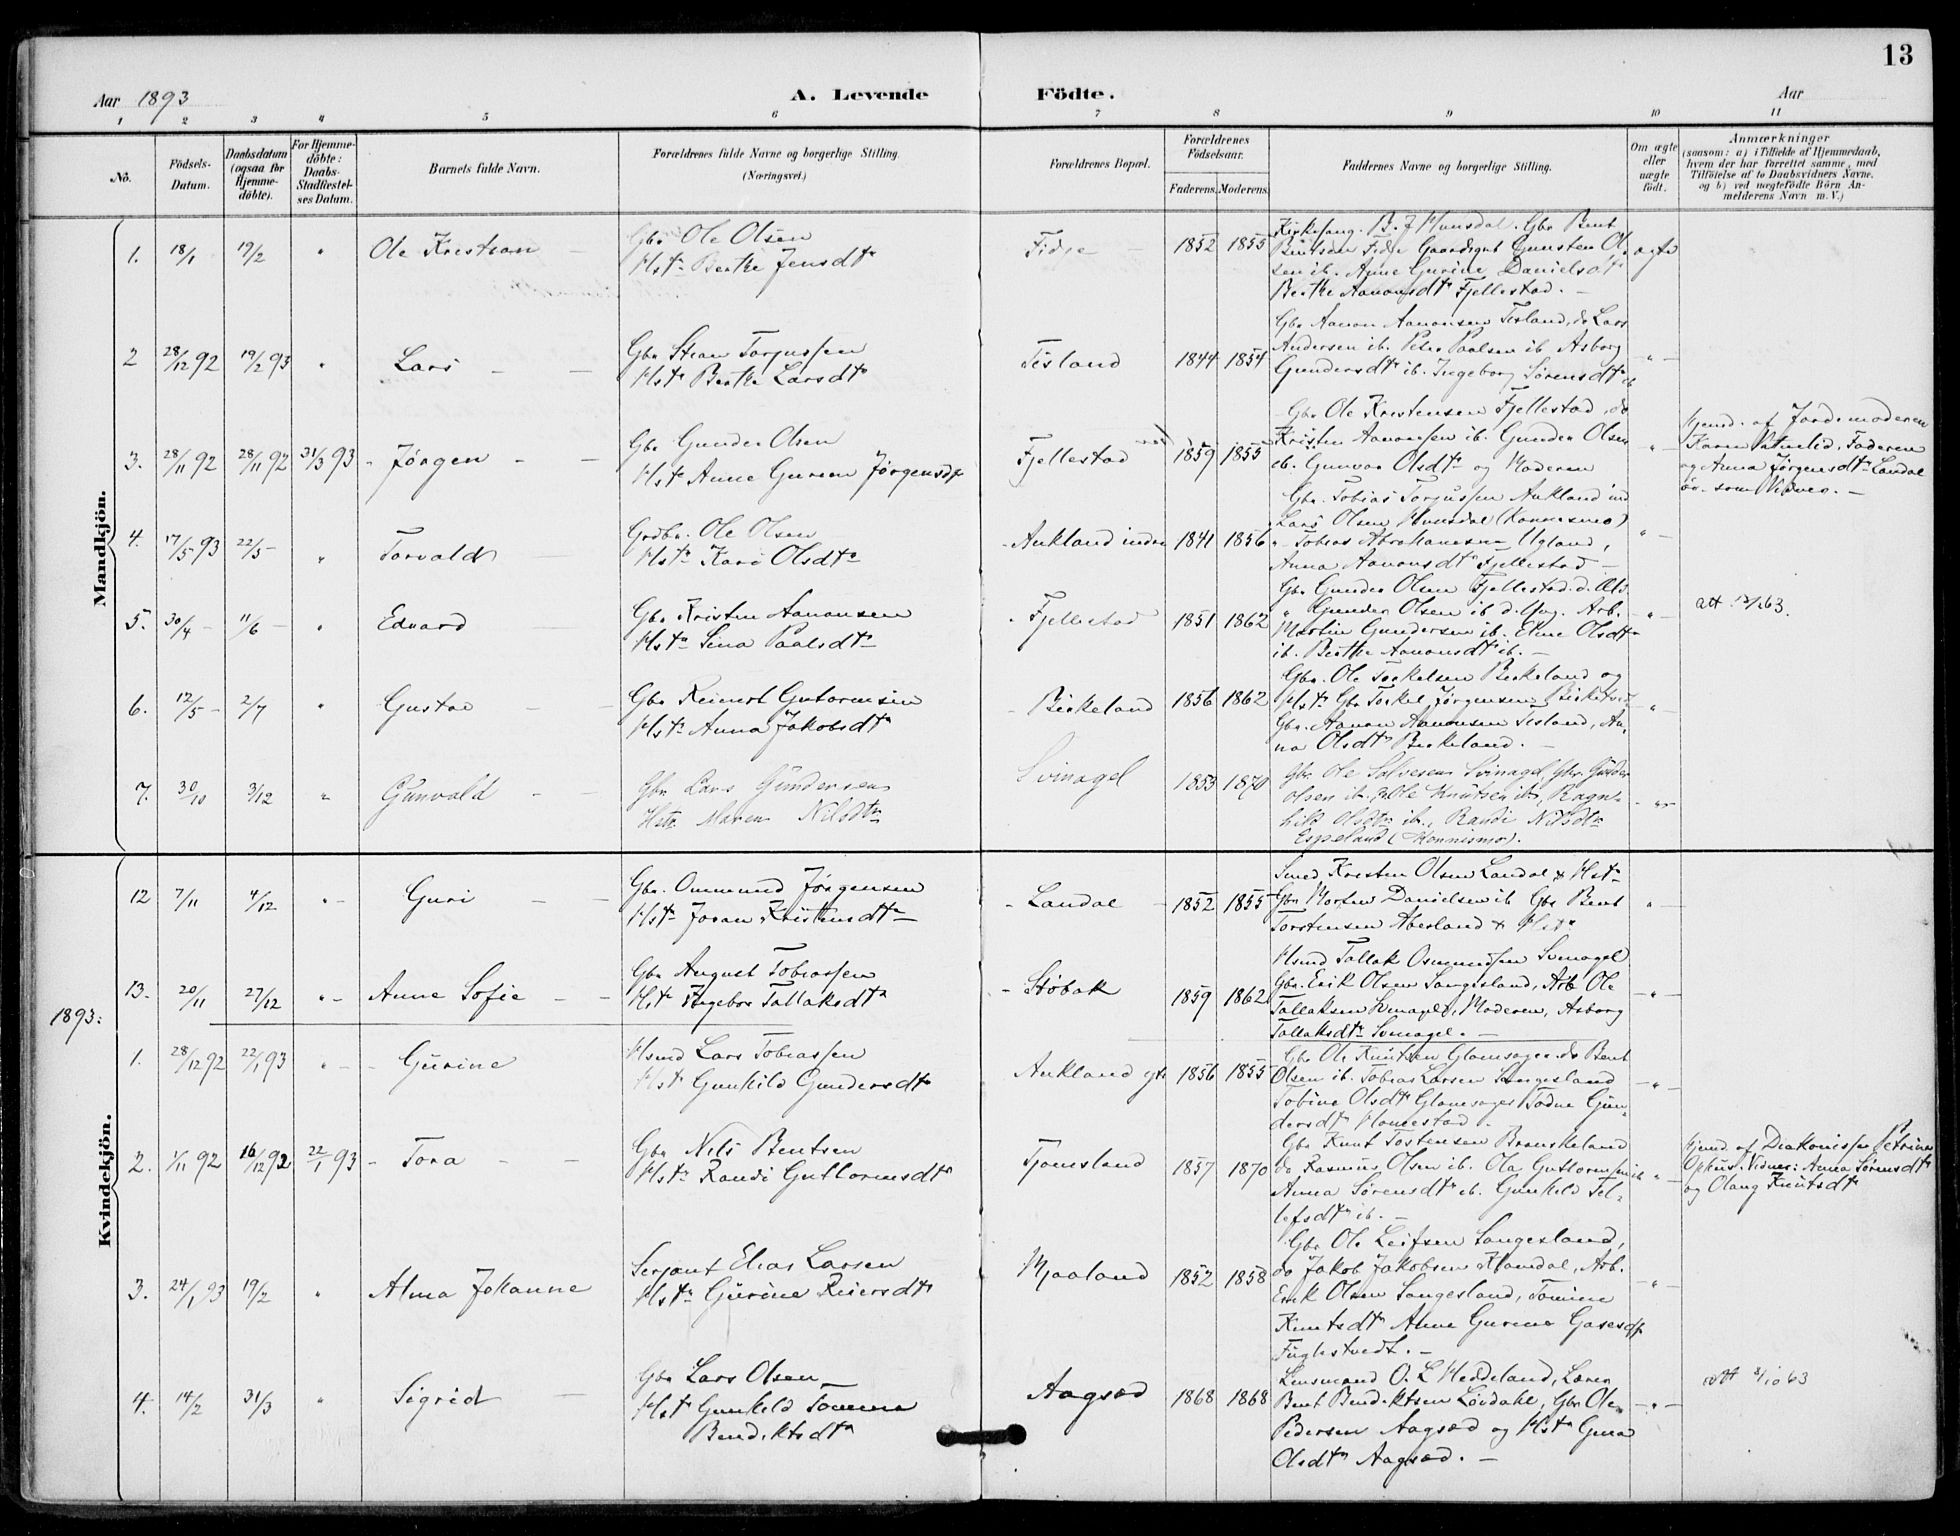 13
Aar 1893 A. Levende Födte. Aar
1 2 3 4 5 6 7 8 9 10 11
No.
Födsels-Datum.
Daabsdatum (ogsaa for Hjemme-döbte).
For Hjemme-döbte: Daabs-Stadfæstel-ses Datum.
Barnets fulde Navn.
Forældrenes fulde Navne og borgerlige Stilling.
(Næringsvei.)
Forældrenes Bopæl.
Forældrenes Födselsaar.
Faderens. Moderens.
Faddernes Navne og borgerlige Stilling.
Om ægte eller uægte födt.
Anmærkninger
(saasom: a) i Tilfælde af Hjemmedaab,
hvem der har forrettet samme, med
Tilföielse af to Daabsvidners Navne,
og b) ved uægtefödte Börn An-
melderens Navn m. V.)
Mandkjön.
1. 18/1 19/2 " Ole Kristian
Gbr Ole Olsen
Hstr Berthe Jensdtr
Fidje 1852 1855
Bentsen Fidje Gaardgut Gunsten Ol-
sen ib. Anne Gurine Danielsdtr
Berthe Aanonsdtr Fjellestad.
ægte
2 28/12 92 19/2 93 " Lars
Gbr Stean Torjussen
Hstr Berthe Larsdtr
Tisland 1844 1854
Gbr Aanon Aanonsen Tisland, do Lars
Andersen ib. Peder Paalsen ib Asborg
Gundersdtr ib. Ingeborg Sörensdtr ib
3. 28/11 92 28/11 92 31/3 93 Jörgen
Gbr Gunder Olsen
Hstr Anne Gurine Jörgensdtr
Fjellestad 1859 1855
Gbr Ole Kristensen Fjellestad, do
Kristen Aanonsen ib. Gunder Olsen
ib. Gunvor Olsdtr og Moderen
Hjemd. af Jordemoderen
Karen Vatnelid. Faderen
og Anna Jörgensdtr Landal
som Vidner.
4. 17/5 93 22/5 " Torvald
Ole Olsen
Hstr Kari Olsdtr
Aukland indre 1841 1856
Gbr. Tobias Torjussen Aukland ind
Lars Olsen
" Tobias Abrahamsen Ugland,
Anna Aanonsdtr Fjellestad
5. 30/4 11/6 " Edvard
Gbr Kristen Aanonsen
Hstr Sina Paalsdtr
Fjellestad 1851 1862
Gbr Gunder Olsen Fjellestad d. Æld.
" Gunder Olsen ib d. Yng. Arb.
Martin Gundersen ib. Eline Olsdtr
ib. Berthe Aanonsdtr ib.
6. 12/5 2/7 " Gustav
Gbr Reinert Gutormsen
Hstr Anna Jakobsdtr
Birkeland 1856 1862
Gbr. Ole Torkelsen Birkeland og
Hstr Gbr Torkel Jörgensen
Gbr. Aanon Aanonsen Tisland, An-
na Olsdtr Birkeland.
7. 30/10 3/12 " Gunvald
Gbr Lars Gundersen
Hstr Maren Nilsdtr
Svinagel 1853 1870
Gbr Ole Salvesen Svinagel, Gbr. Gunder
Olsen ib., Ole Knutsen ib., Ragn-
hild Olsdtr ib., Randi Nilsdtr
Espeland (Konnismo).
1893:
Kvindekjön.
12 7/11 4/12 Guri
Gbr. Ommund Jörgensen
Hstr Joran Kristensdtr
Landal 1852 1855
Smed Kristen Olsen Landal & Hstr
Gbr Morten Danielsen ib Gbr Bent
Torstensen Abesland & Hstr
13. 20/11 27/12 Anne Sofie
Gbr August Tobiassen
Hstr Ingebor Tallaksdtr
Stöbak 1859 1862
Hsmd Tallak Osmundsen Svinagel
Gbr. Erik Olsen Sangesland, Arb Ole
Tallaksen Svinagel, Moderen, Asborg
Tallaksdtr Svinagel.
1. 28/12 92 22/1 93 Gurine
Hsmd Lars Tobiassen
Hstr Gunhild Gundersdtr
Aukland 1856 1855
Gbr Ole Knutsen Glomsager do Bent
Olsen ib. Tobias Larsen Sangesland
Tobine Olsdtr Glomsager Todne Gun-
dersdtr Homestad.
2. 1/11 92 16/12 92 22/1 93 Tora
Gbr Nils Bentsen
Hstr Randi Guttormsdtr
Tjomsland 1857 1870
Gbr Knut Tostensen Brouskeland
do Rasmus Olsen ib. Ola Guttormsen ib
Anna Sörensdtr ib. Gunhild Tel-
lefsdtr ib.
Hjemd. af Diakonisse Petrine
Ophus. Vidner: Anna Sörensdtr
og Olaug Knutsdtr
3. 24/1 93 19/2 " Alma Johanne
Serjant Elias Larsen
Hstr Gurine Reiersdtr
Mjaaland 1852 1858
Gbr Ole Leifsen Sangesland,
do Jakob Jakobsen Homdal, Arb.
Erik Olsen Sangesland, Tomine
Knutsdtr Anne Gurine
Fuglestvedt.
4. 14/2 31/3 " Sigrid
Gbr Lars Olsen
Hstr Gunhild Tomine
Bendiktsdtr
Aagsæd 1868 1868
Lensmand O. L. Heddeland, Lærer
Bent Bendiktsen Lövdahl, Gbr Ole
Pedersen Aagsæd og Hstr Guna
Olsdtr Aagsæd.
att 8/10 63